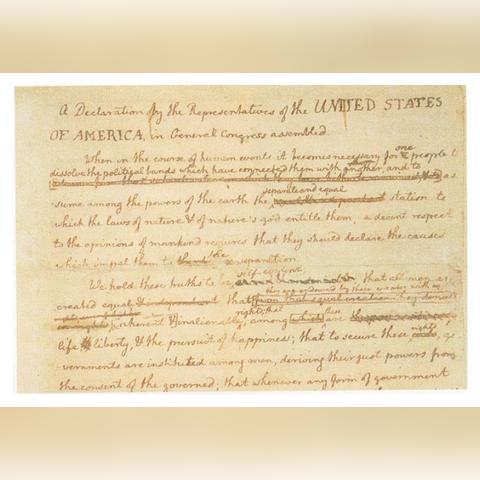 A Declaration by the Representatives of the UNITED STATES
OF AMERICA, in General Congress assembled.
When in the course of human events it becomes necessary for one people to
dissolve the political bands which have connected them with another, and to
as
separate and equal
sume among the powers of the earth the station to
which the laws of nature & of nature's god entitle them, a decent respect
to the opinions of mankind requires that they should declare the causes
which impel them to the separation.
self-evident,
We hold these truths to be that all men are
created equal that
rights; that
inherent & inalienable, among these are
life, & liberty, & the pursuit of happiness; that to secure these rights, go
vernments are instituted among men, deriving their just powers from
the consent of the governed; that whenever any form of government